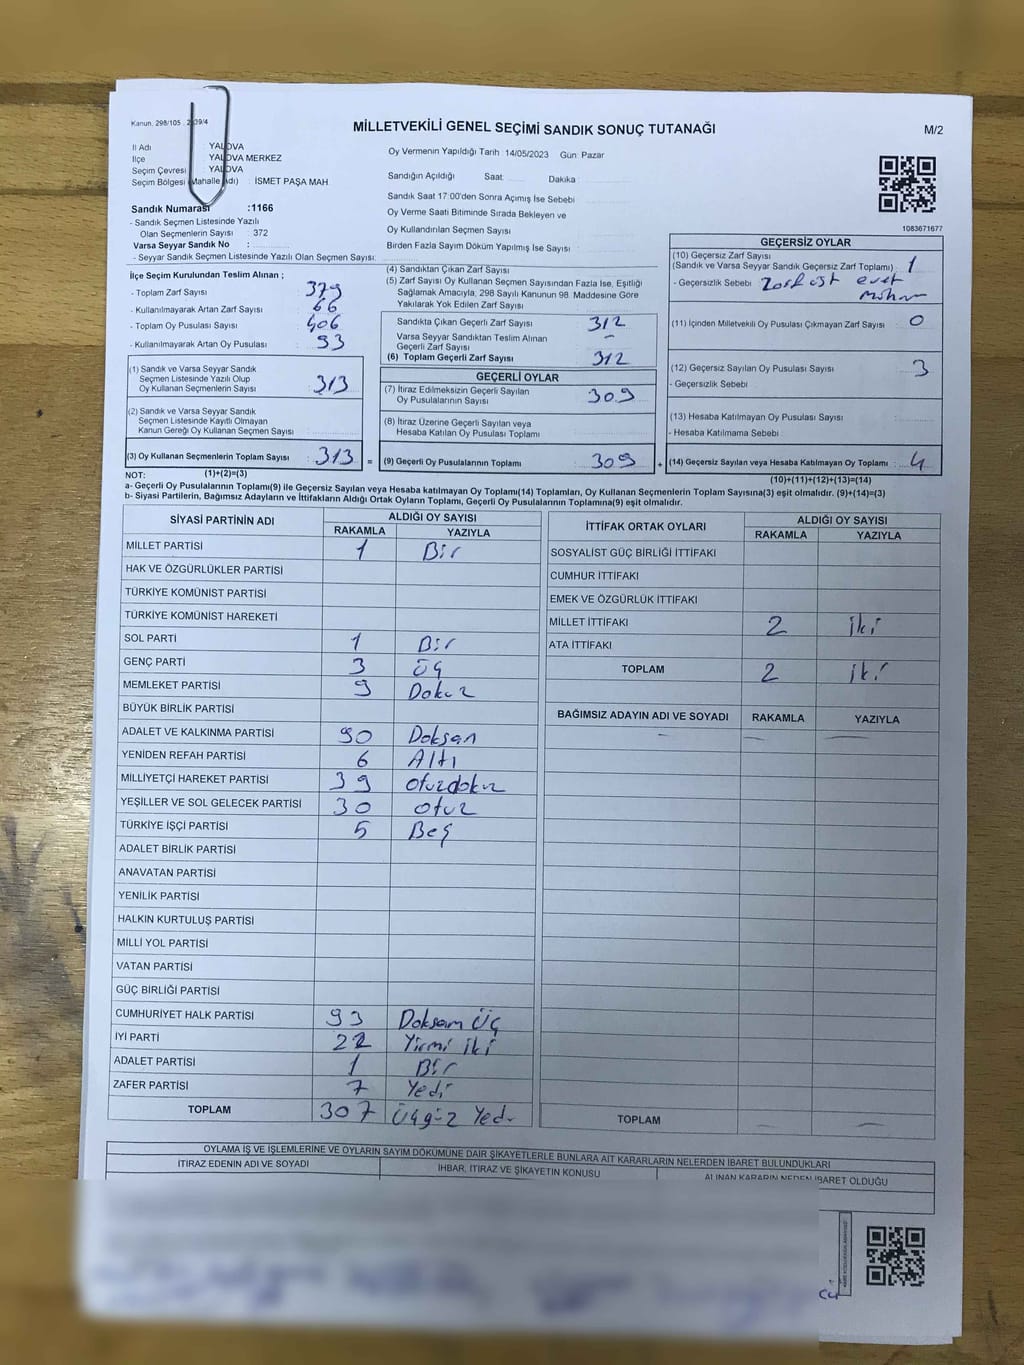 Kanun. 298/105
MİLLETVEKİLİ GENEL SEÇİMİ SANDIK SONUÇ TUTANAĞI
M/2
İl Adı YALOVA
İlçe YALOVA MERKEZ
Seçim Çevresi YALOVA
Seçim Bölgesi (Mahalle Adı) : İSMET PAŞA MAH
Oy Vermenin Yapıldığı Tarih : 14/05/2023 Gün: Pazar
Sandığın Açıldığı Saat: Dakika:
Sandık Saat 17:00'den Sonra Açımış İse Sebebi
Oy Verme Saati Bitiminde Sırada Bekleyen ve
Oy Kullandırılan Seçmen Sayısı
Birden Fazla Sayım Döküm Yapılmış İse Sayısı
1083671677
Sandık Numarası :1166
- Sandık Seçmen Listesinde Yazılı
Olan Seçmenlerin Sayısı : 372
Varsa Seyyar Sandık No :
- Seyyar Sandık Seçmen Listesinde Yazılı Olan Seçmen Sayısı:
İlçe Seçim Kurulundan Teslim Alınan ;
- Toplam Zarf Sayısı 379
- Kullanılmayarak Artan Zarf Sayısı 66
- Toplam Oy Pusulası Sayısı 406
- Kullanılmayarak Artan Oy Pusulası 93
(1) Sandık ve Varsa Seyyar Sandık
Seçmen Listesinde Yazılı Olup
Oy Kullanan Seçmenlerin Sayısı 313
(2) Sandık ve Varsa Seyyar Sandık
Seçmen Listesinde Kayıtlı Olmayan
Kanun Gereği Oy Kullanan Seçmen Sayısı
(3) Oy Kullanan Seçmenlerin Toplam Sayısı 313 =
(4) Sandıktan Çıkan Zarf Sayısı
(5) Zarf Sayısı Oy Kullanan Seçmen Sayısından Fazla İse, Eşitliği
Sağlamak Amacıyla, 298 Sayılı Kanunun 98. Maddesine Göre
Yakılarak Yok Edilen Zarf Sayısı
Sandıkta Çıkan Geçerli Zarf Sayısı 312
Varsa Seyyar Sandıktan Teslim Alınan
Geçerli Zarf Sayısı –
(6) Toplam Geçerli Zarf Sayısı 312
GEÇERLİ OYLAR
(7) İtiraz Edilmeksizin Geçerli Sayılan
Oy Pusulalarının Sayısı 309
(8) İtiraz Üzerine Geçerli Sayılan veya
Hesaba Katılan Oy Pusulası Toplamı
(9) Geçerli Oy Pusulalarının Toplamı 309 +
GEÇERSİZ OYLAR
(10) Geçersiz Zarf Sayısı
(Sandık ve Varsa Seyyar Sandık Geçersiz Zarf Toplamı) 1
- Geçersizlik Sebebi evet
(11) İçinden Milletvekili Oy Pusulası Çıkmayan Zarf Sayısı 0
(12) Geçersiz Sayılan Oy Pusulası Sayısı 3
- Geçersizlik Sebebi
(13) Hesaba Katılmayan Oy Pusulası Sayısı
- Hesaba Katılmama Sebebi
(14) Geçersiz Sayılan veya Hesaba Katılmayan Oy Toplamı 4
NOT: (1)+(2)=(3) (10)+(11)+(12)+(13)=(14)
a- Geçerli Oy Pusulalarının Toplamı(9) ile Geçersiz Sayılan veya Hesaba katılmayan Oy Toplamı(14) Toplamları, Oy Kullanan Seçmenlerin Toplam Sayısına(3) eşit olmalıdır. (9)+(14)=(3)
b- Siyasi Partilerin, Bağımsız Adayların ve İttifakların Aldığı Ortak Oyların Toplamı, Geçerli Oy Pusulalarının Toplamına(9) eşit olmalıdır.
SİYASİ PARTİNİN ADI ALDIĞI OY SAYISI
RAKAMLA YAZIYLA
MİLLET PARTİSİ 1 Bir
HAK VE ÖZGÜRLÜKLER PARTİSİ
TÜRKİYE KOMÜNİST PARTİSİ
TÜRKİYE KOMÜNİST HAREKETİ
SOL PARTİ 1 Bir
GENÇ PARTİ 3 Üç
MEMLEKET PARTİSİ 9 Dokuz
BÜYÜK BİRLİK PARTİSİ
ADALET VE KALKINMA PARTİSİ 90 Doksan
YENİDEN REFAH PARTİSİ 6 Altı
MİLLİYETÇİ HAREKET PARTİSİ 39 otuzdokuz
YEŞİLLER VE SOL GELECEK PARTİSİ 30 otuz
TÜRKİYE İŞÇİ PARTİSİ 5 Beş
ADALET BİRLİK PARTİSİ
ANAVATAN PARTİSİ
YENİLİK PARTİSİ
HALKIN KURTULUŞ PARTİSİ
MİLLİ YOL PARTİSİ
VATAN PARTİSİ
GÜÇ BİRLİĞİ PARTİSİ
CUMHURİYET HALK PARTİSİ 93 Doksan Üç
İYİ PARTİ 22 Yirmi iki
ADALET PARTİSİ 1 Bir
ZAFER PARTİSİ 7 Yedi
TOPLAM 307 Üçyüz Yedi
İTTİFAK ORTAK OYLARI ALDIĞI OY SAYISI
RAKAMLA YAZIYLA
SOSYALİST GÜÇ BİRLİĞİ İTTİFAKI
CUMHUR İTTİFAKI
EMEK VE ÖZGÜRLÜK İTTİFAKI
MİLLET İTTİFAKI 2 iki
ATA İTTİFAKI
TOPLAM 2 iki
BAĞIMSIZ ADAYIN ADI VE SOYADI RAKAMLA YAZIYLA
– – –
TOPLAM – –
OYLAMA İŞ VE İŞLEMLERİNE VE OYLARIN SAYIM DÖKÜMÜNE DAİR ŞİKAYETLERLE BUNLARA AİT KARARLARIN NELERDEN İBARET BULUNDUKLARI
İTİRAZ EDENİN ADI VE SOYADI İHBAR, İTİRAZ VE ŞİKAYETİN KONUSU ALINAN KARARIN NEDEN İBARET OLDUĞU